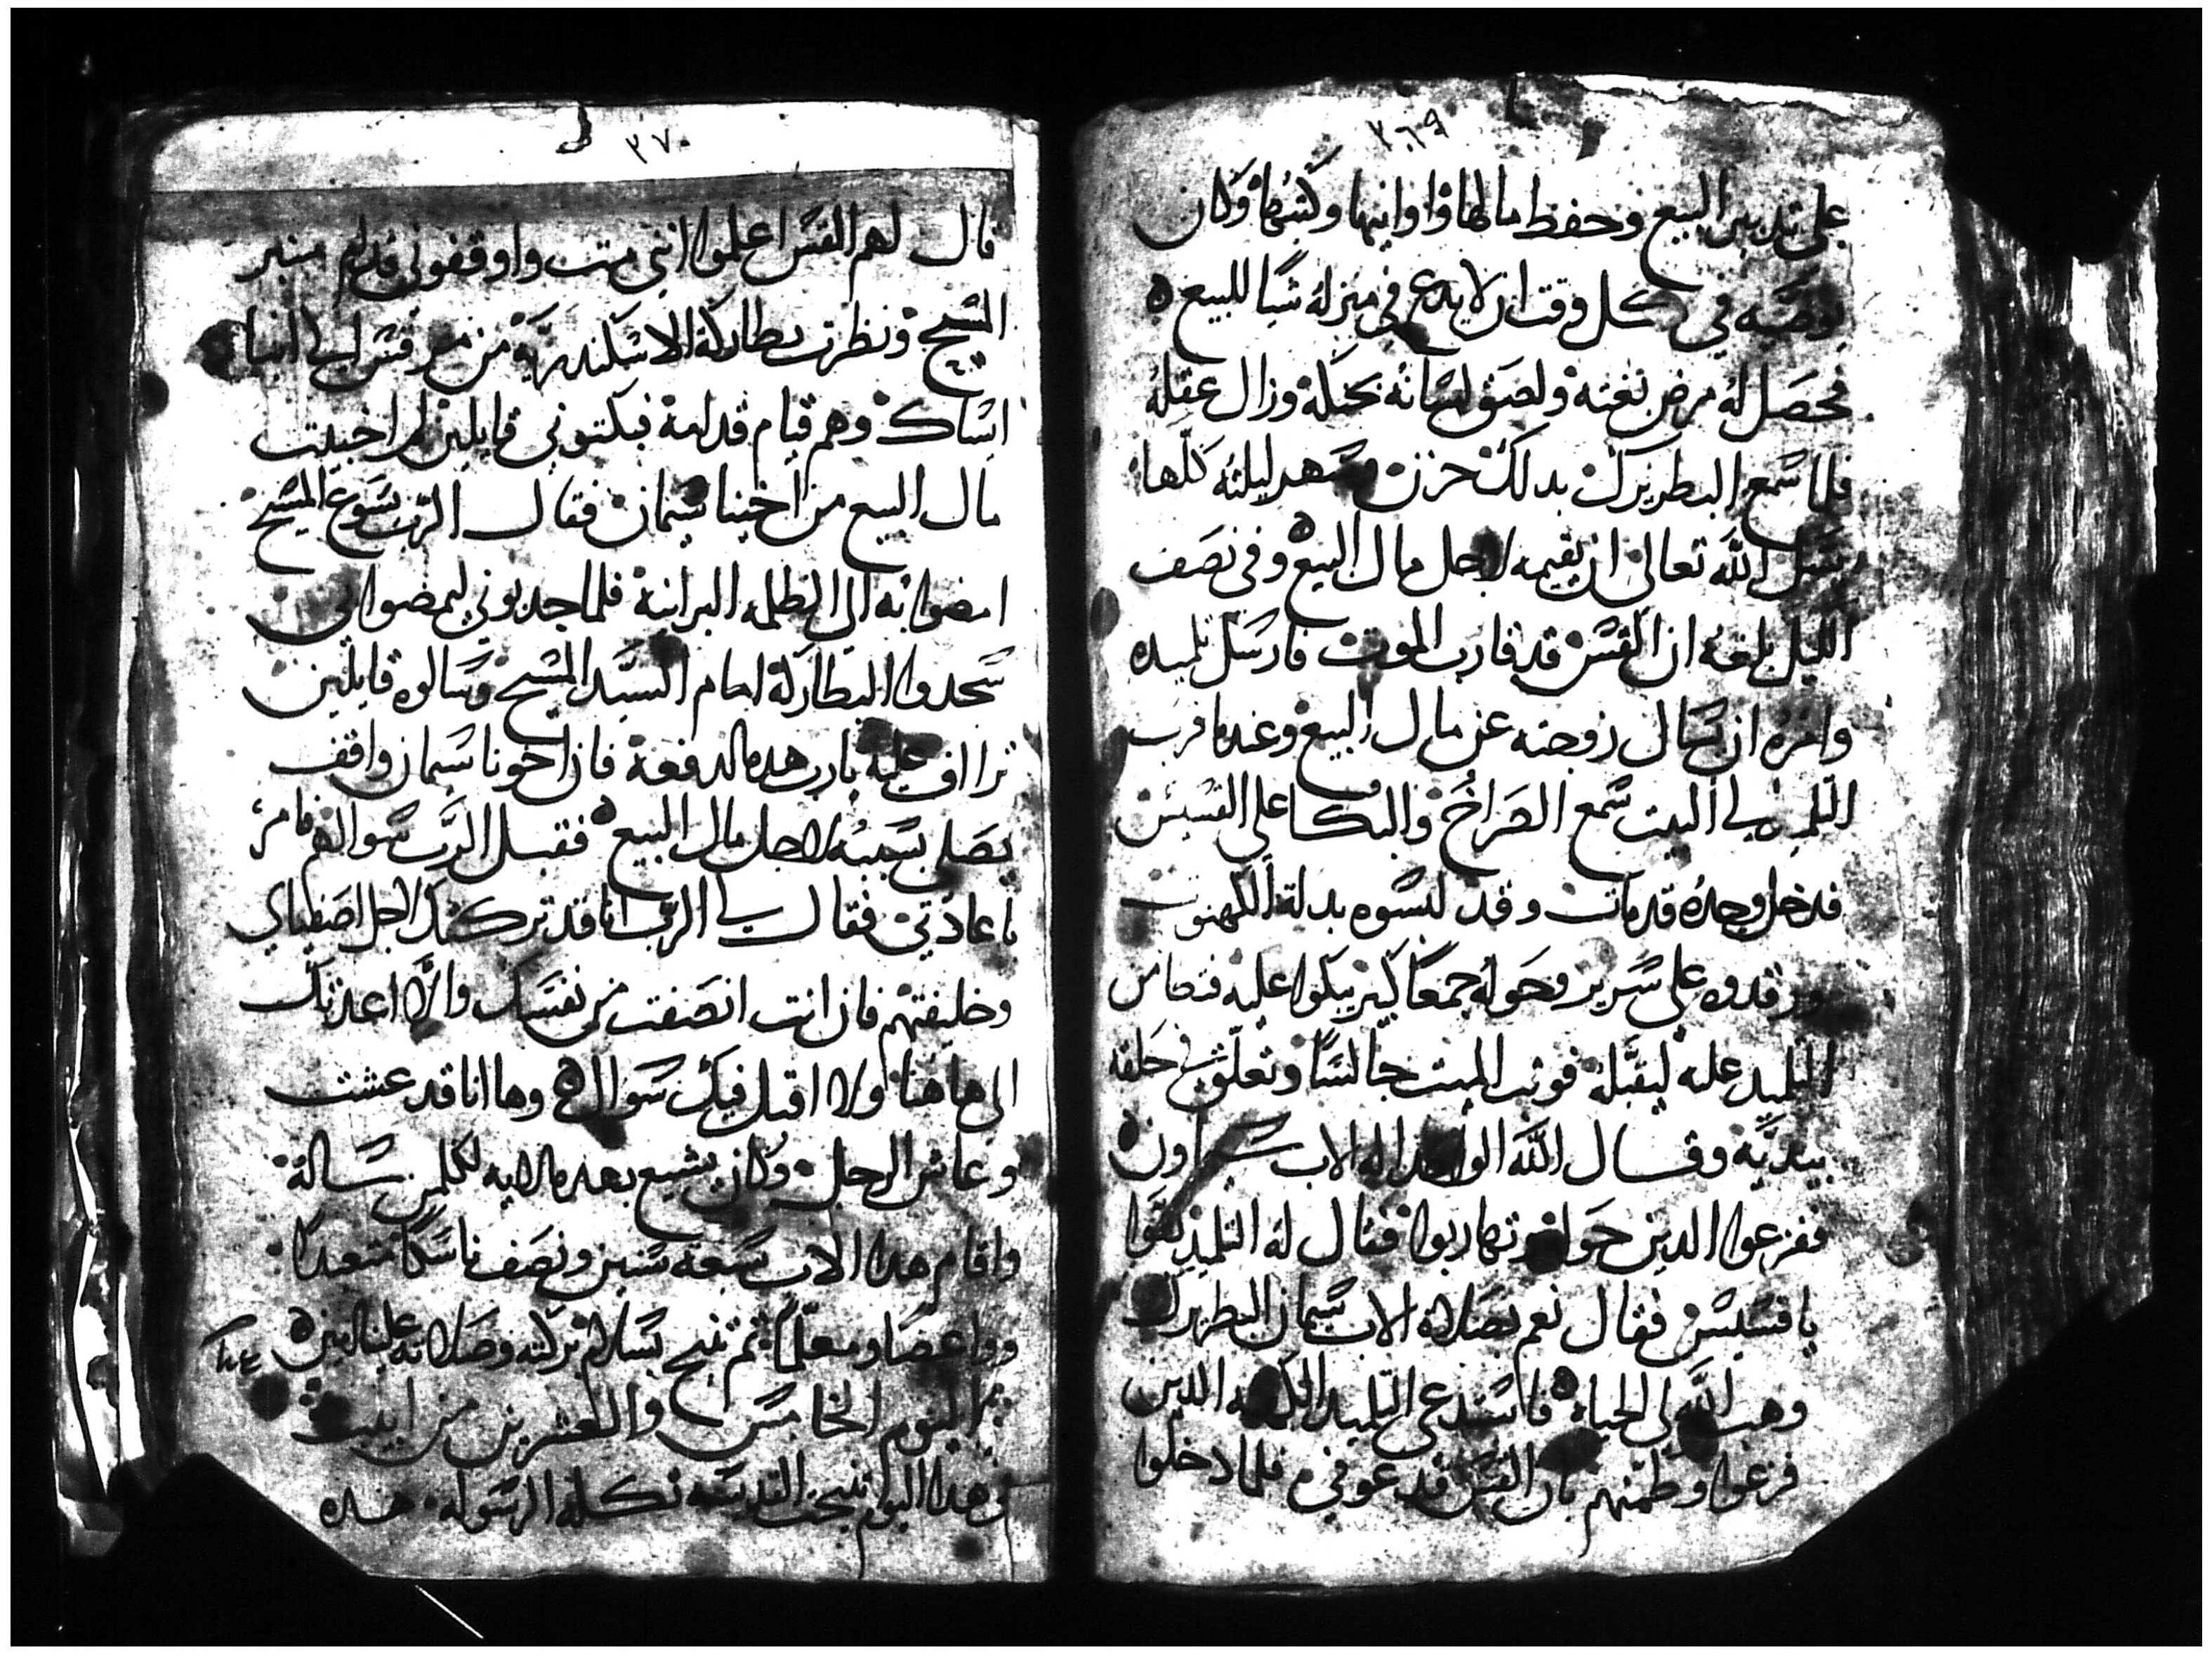 ٣٦٩
على تدبير البيع وحفظ مالها واوانيها وكتبها وكان
يوصيه في كل وقت ان لا يدع في منزله شيا للبيع
فحصل له مرض بغته ولصق لسانه بحنكه وزال عقله
فلما سمع البطريرك بدلك حزن وسهر ليلته كلها
يسل الله تعالى ان يقيمه لاجل مال البيع وفى نصف
الليل بلغه ان القس قد قارب الموت فارسل تلميده
وامره ان يسال زوجته عن مال البيع وعندما قرب
التلميد الى البيت سمع الصراخ والبكا على القسيس
فدخل وجده قد مات وقد لبسوه بدلة الكهنوت
ورقدوه على سرير وحوله جمعا كبير يبكوا عليه فتطامن
التلميد عليه ليقبله فوثب الميت جالسا وتعلق في حلقه
بيديه وقال الله الواحد اله الاب سيماون
ففزعوا الدين حوله وتهاربوا فقال له التلميذ تقوا
يا قسيس فقال نعم بصلاة الاب سيمان البطريرك
وهب الله لي الحياه فاستدعى التلميد الكهنه الدين
فزعوا وطمنهم بان القس قد عوفي فلما دخلوا
٣٧٠
قال لهم القس اعلموا انني مت واوقفوني قدام منبر
المسيح ونظرت بطاركة الاسكندرية من مرقس الى انبا
اسحاك وهم قيام قدامه فبكتوني قايلين لم اخبيت
مال البيع من اخينا سيمان فقال الرب يسوع المسيح
امضوا به الي الظلمه البرانية فلما جدبوني ليمضوا بي
سجدوا البطاركة امام السيد المسيح وسالوه قايلين
تراااف عليه يارب هده الدفعة فان اخونا سيمان واقف
يصلي بسببه لاجل مال البيع فقبل الرب سوالهم فامر
باعادتي فقال لي الرب انا قد تركتك لاجل اصفياي
وخليفتهم فان انت انصفت من نفسك والا اعدتك
الى هاهنا ولا اقبل فيك سوال وها انا قد عشت
وعاش الرجل وكان يشيع بهذه الايه لكلمن سالة
واقام هدا الاب سبعة سنين ونصف ناسكا متعبدا
وواعضا ومعلما ثم تنيح بسلام بركته وصلاته علينا امين
اليوم الخامس والعشرين من ابيب
فى هدا اليوم تنيحت القديسه تكله الرسوله هده